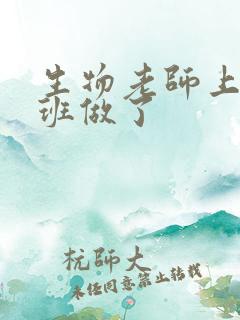 生物老師上
班做了
杭師大
未经同意禁止转载